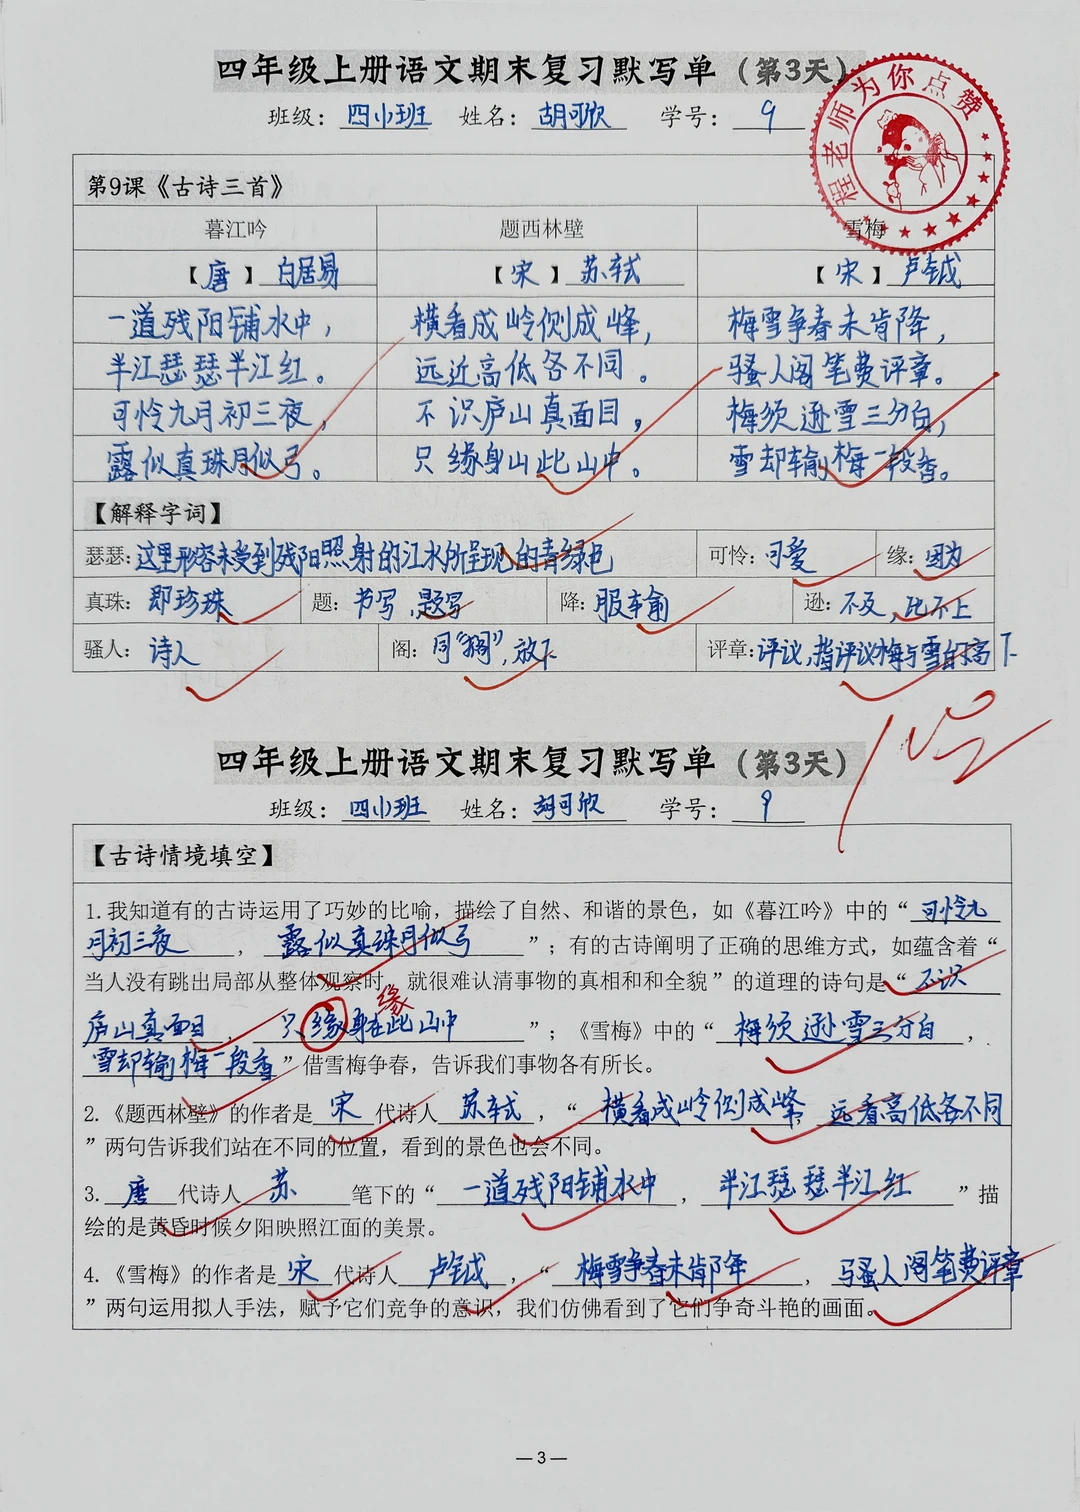 四年级上册语文期末复习默写单（第3天）
班级：四小班 姓名：胡可欣 学号：9
程老师为你点赞
第9课《古诗三首》
暮江吟 题西林壁 雪梅
【唐】白居易 【宋】苏轼 【宋】卢钺
一道残阳铺水中， 横看成岭侧成峰， 梅雪争春未肯降，
半江瑟瑟半江红。 远近高低各不同。 骚人阁笔费评章。
可怜九月初三夜， 不识庐山真面目， 梅须逊雪三分白，
露似真珠月似弓。 只缘身山此山中。 雪却输梅一段香。
【解释字词】
瑟瑟：这里形容未受到残阳照射的江水所呈现的青绿色 可怜：可爱 缘：因为
真珠：即珍珠 题：书写，题写 降：服输 逊：不及，比不上
骚人：诗人 阁：同“搁”，放下 评章：评议，指评议梅与雪的高下
四年级上册语文期末复习默写单（第3天）
班级：四小班 姓名：胡可欣 学号：9
【古诗情境填空】
1. 我知道有的古诗运用了巧妙的比喻，描绘了自然、和谐的景色，如《暮江吟》中的“可怜九
月初三夜，露似真珠月似弓”；有的古诗阐明了正确的思维方式，如蕴含着“
当人没有跳出局部从整体观察时，就很难认清事物的真相和和全貌”的道理的诗句是“不识
缘
庐山真面目，只缘身在此山中”；《雪梅》中的“梅须逊雪三分白，
雪却输梅一段香”借雪梅争春，告诉我们事物各有所长。
2.《题西林壁》的作者是宋代诗人苏轼，“横看成岭侧成峰，远看高低各不同
”两句告诉我们站在不同的位置，看到的景色也会不同。
3. 唐代诗人苏笔下的“一道残阳铺水中，半江瑟瑟半江红”描
绘的是黄昏时候夕阳映照江面的美景。
4.《雪梅》的作者是宋代诗人卢钺，“梅雪争春未肯降，骚人阁笔费评章
”两句运用拟人手法，赋予它们竞争的意识，我们仿佛看到了它们争奇斗艳的画面。
— 3 —